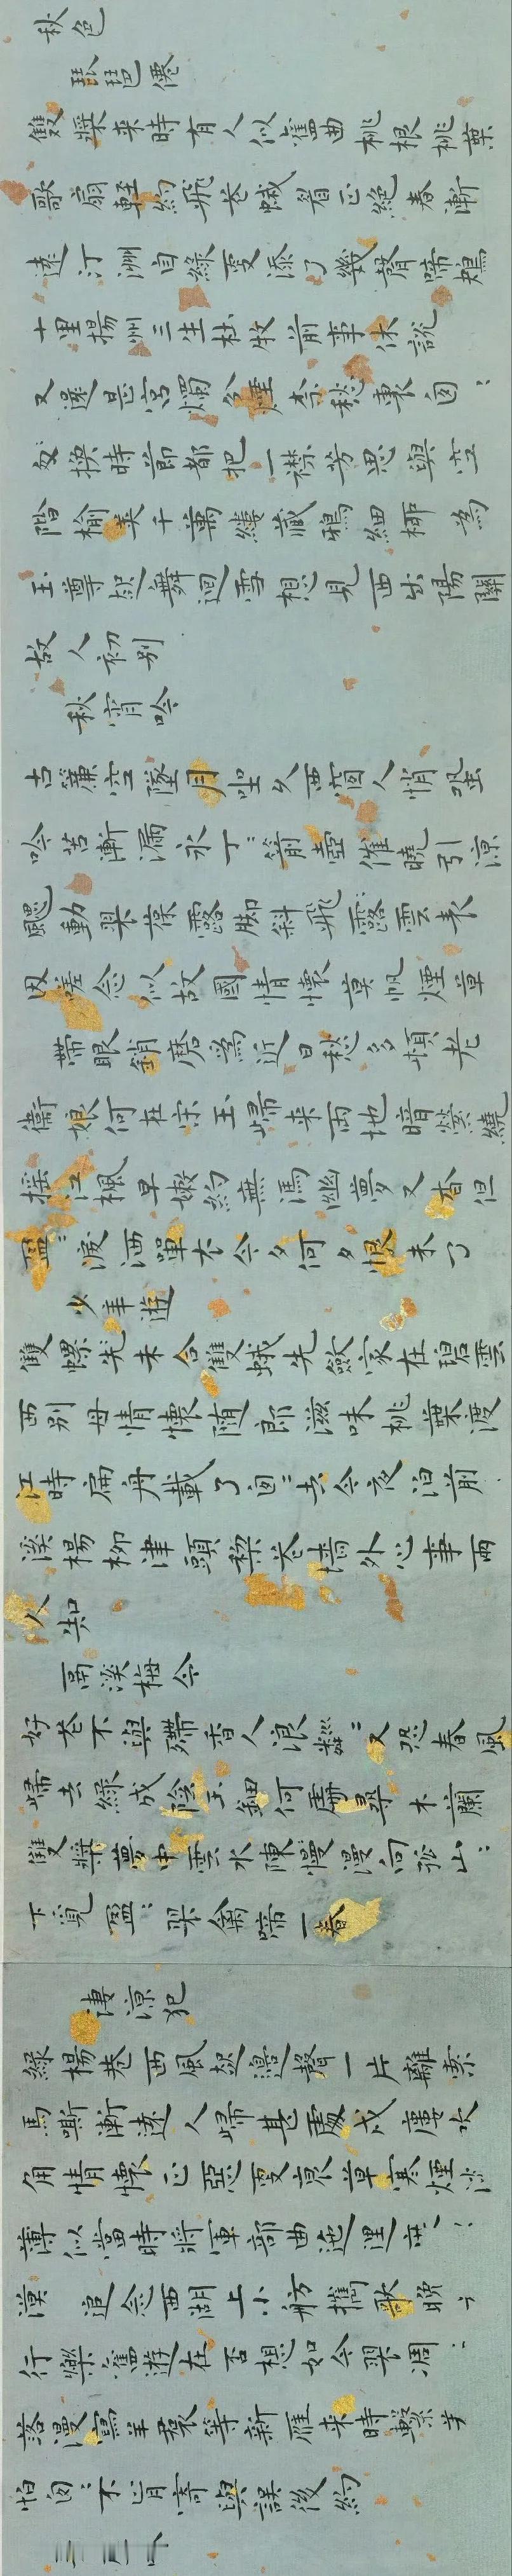 秋色
琵琶僊
雙槳来時有人似舊曲桃根桃葉
歌扇輕約飛花蛾眉正絕春漸
遠汀洲自綠更添了幾聲啼鴂
十里揚州三生杜牧前事休說
又還是宮燭分煙奈愁裏匆:
換時節都把一襟芳思與空
階榆莢千萬縷藏鴉細柳為
玉尊起舞迴雪想見西出陽關
故人初別
秋宵吟
古簾空墜月坐久西窗人悄蛩
吟苦漸漏永丁:箭壺催曉引凉
颸動翠葆露脚斜飛露雲表
因嗟念似故國情懷莫帆煙草
帶眼銷磨爲近日愁多頓老
衞娘何在宋玉歸来兩地暗縈繞
摇江楓早嫩約無馮幽夢又杳但
盈:淚洒單衣今夕何夕恨未了
少年遊
雙螺先未合雙蛾先歛家在碧雲
西別母情懷随郎滋味桃葉渡
江時扁舟載了匆:去今夜泊前
溪楊柳津頭梨花墻外心事兩
人知
鬲溪梅令
好花不與殢香人浪粼:又恐春風
歸去綠成陰玉鈿何處尋木蘭
雙槳夢中雲水陳慢漫向孤山:
下覓盈:翠禽啼一春
凄凉犯
綠楊巷西風起邊聲一片離索
馬嘶漸遠人歸甚處戍樓吹
角情懷正惡更衰草寒煙淡
薄似當時將軍部曲迤邐
漠追念西湖上小舫攜歌晚
行樂舊遊在否想如今翠凋
落漫寫羊裙等新雁来時繫著
怕匆:不肯寄與誤後約